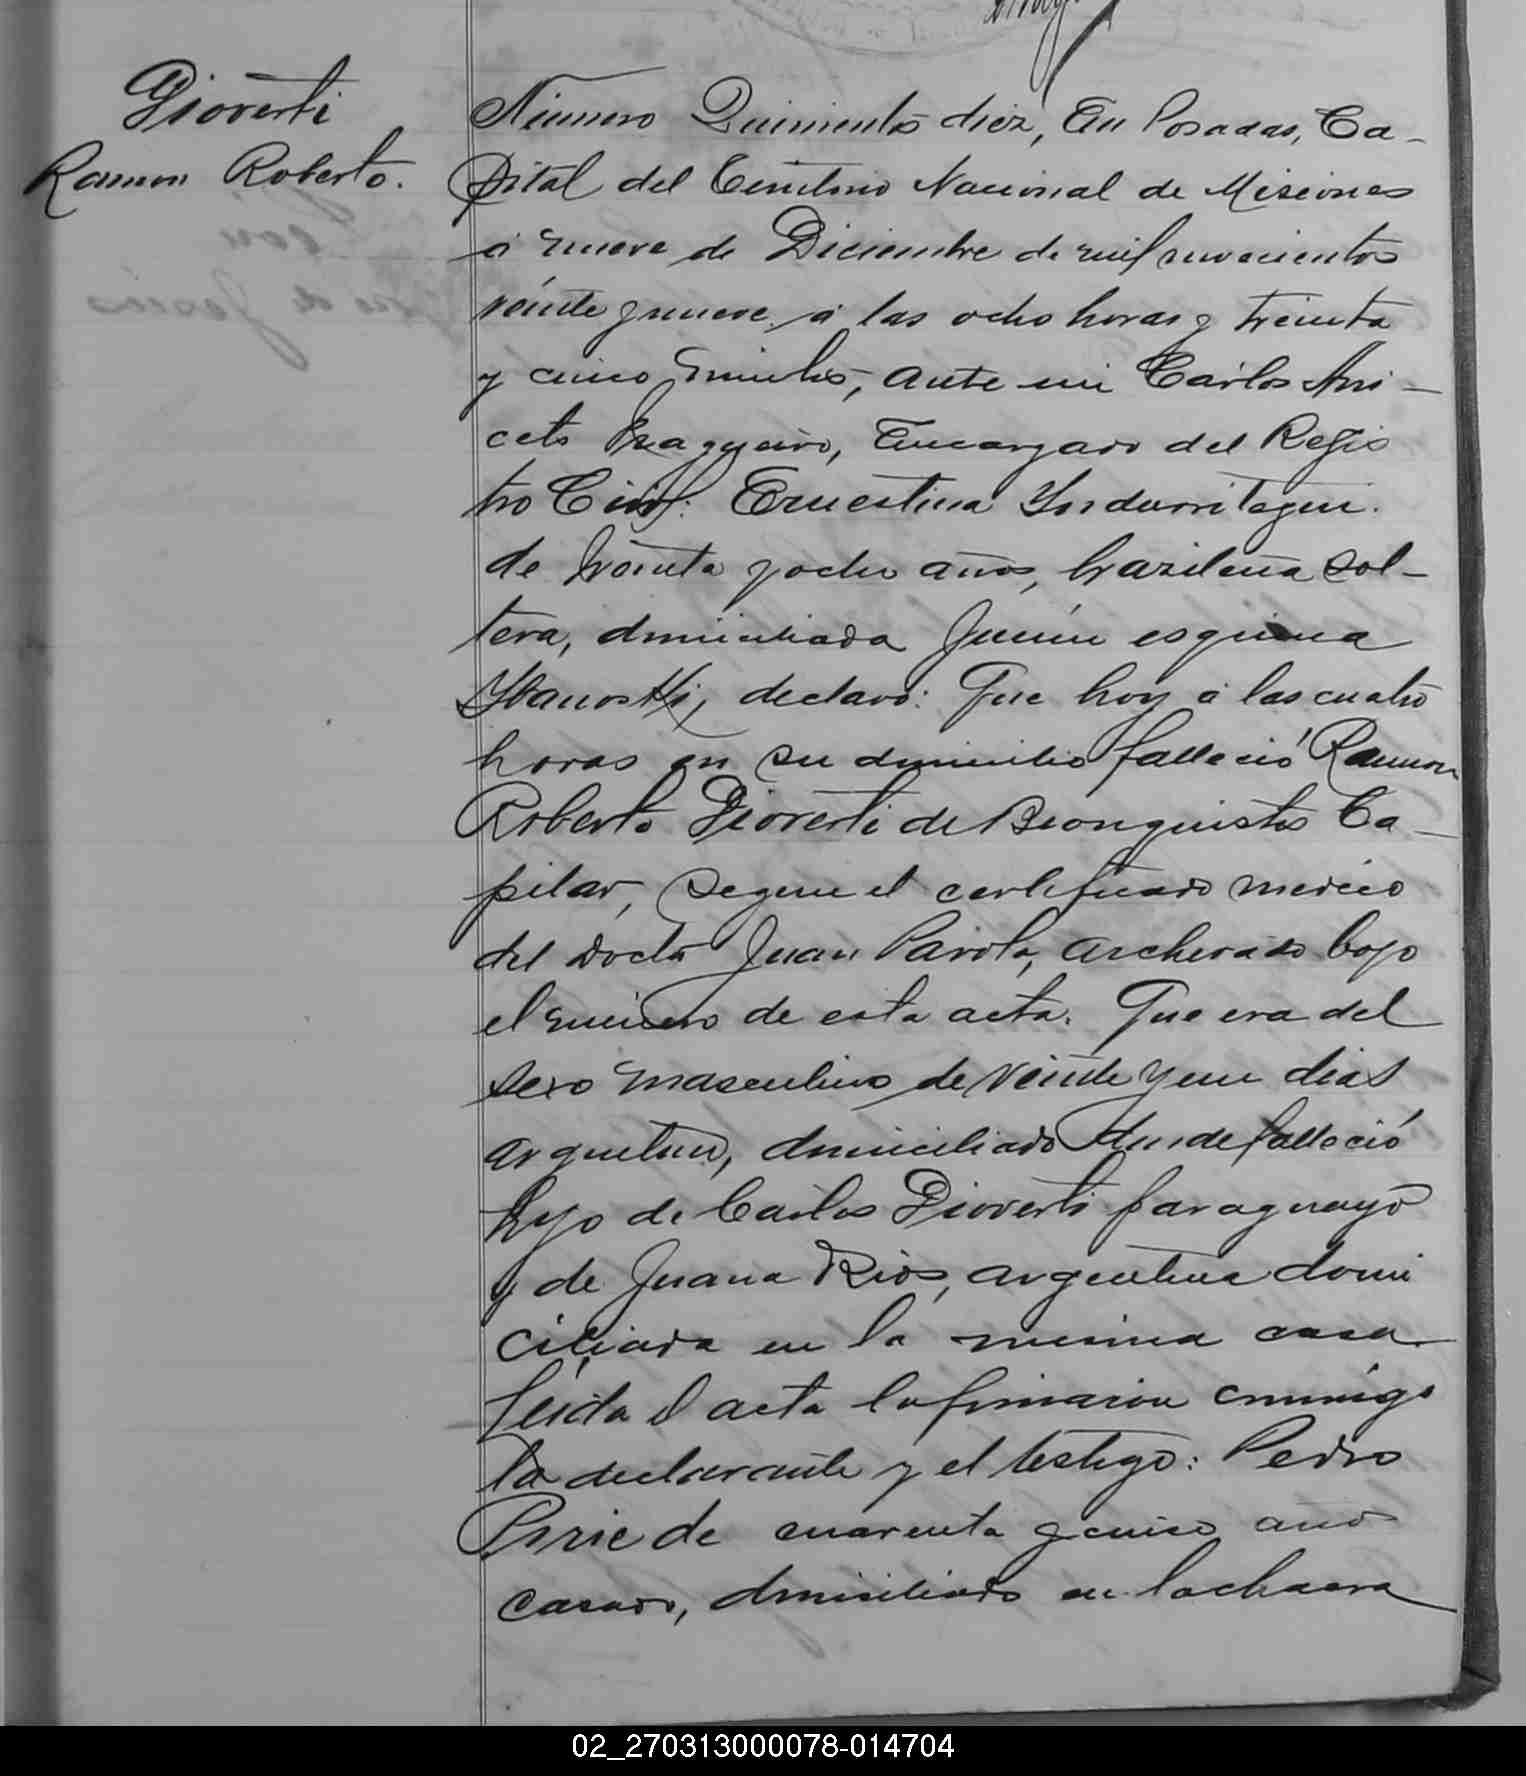 Gioverti
Ramon Roberto.
Número Quinientos diez, En Posadas, Ca-
pital del Territorio Nacional de Misiones
á nueve de Diciembre de mil novecientos
veinte y nueve á las ocho horas y treinta
y cinco minutos, ante mi Carlos Ani-
ceto, Encargado del Regis
tro Civil: Ernestina Yndurritegui.
de treinta y ocho años, brazileña sol-
tera, domiciliada Junín esquina
declaró: Que hoy á las cuatro
horas en su domicilio falleció Ramon
Roberto Gioverti de Bronquistis Ca-
pilar, segun el certificado medico
del Doctor Juan Parola, archivado bajo
el número de esta acta. Que era del
sexo masculino de veinte y un dias
argentino, domiciliado donde falleció
hijo de Carlos Gioverti paraguayo
y de Juana Rios, argentina domi
ciliada en la misma casa
Leida el acta la firmaron conmigo
la declarante y el testigo: Pedro
de cuarenta y cinco años
casado, domiciliado en la chacra
02_270313000078-014704